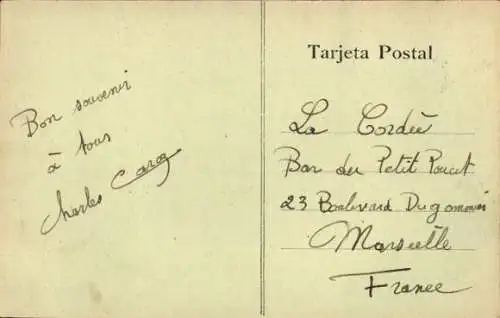 Bon souvenir
à tous
Charles
Tarjeta Postal
La Cordée
Bar du Petit Poucet
23 Boulevard Dugommier
Marseille
France